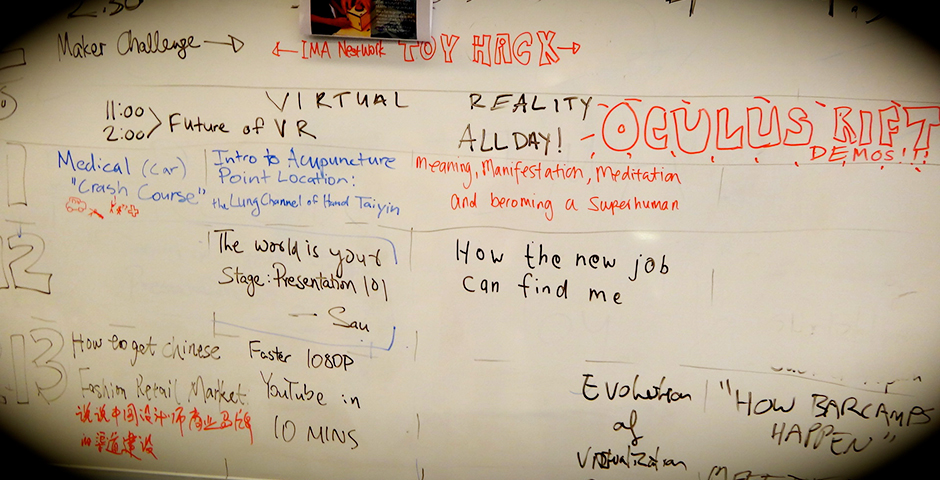 2:30
Maker Challenge → ← IMA Network TOY HACK →
VIRTUAL REALITY
ALLDAY!
OCULUS RIFT
DEMOS!!!
11:00
2:00
Future of VR
Medical (car)
"Crash Course"
Intro to Acupuncture
Point Location:
the Lung Channel of Hand Taiyin
Meaning, Manifestation, Meditation
and becoming a Superhuman
12
The world is your
Stage: Presentation 101
— Sau
How the new job
can find me
13
How to get chinese
Fashion Retail Market
说说中国设计师商业品牌
的渠道建设
Faster 1080P
YouTube in
10 MINS
Evolution
of
Virtualization
"HOW BARCAMPS
HAPPEN"